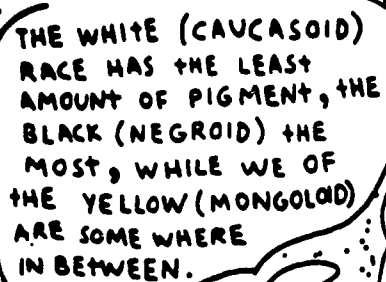 THE WHITE (CAUCASOID)
RACE HAS THE LEAST
AMOUNT OF PIGMENT, THE
BLACK (NEGROID) THE
MOST, WHILE WE OF
THE YELLOW (MONGOLOID)
ARE SOME WHERE
IN BETWEEN.